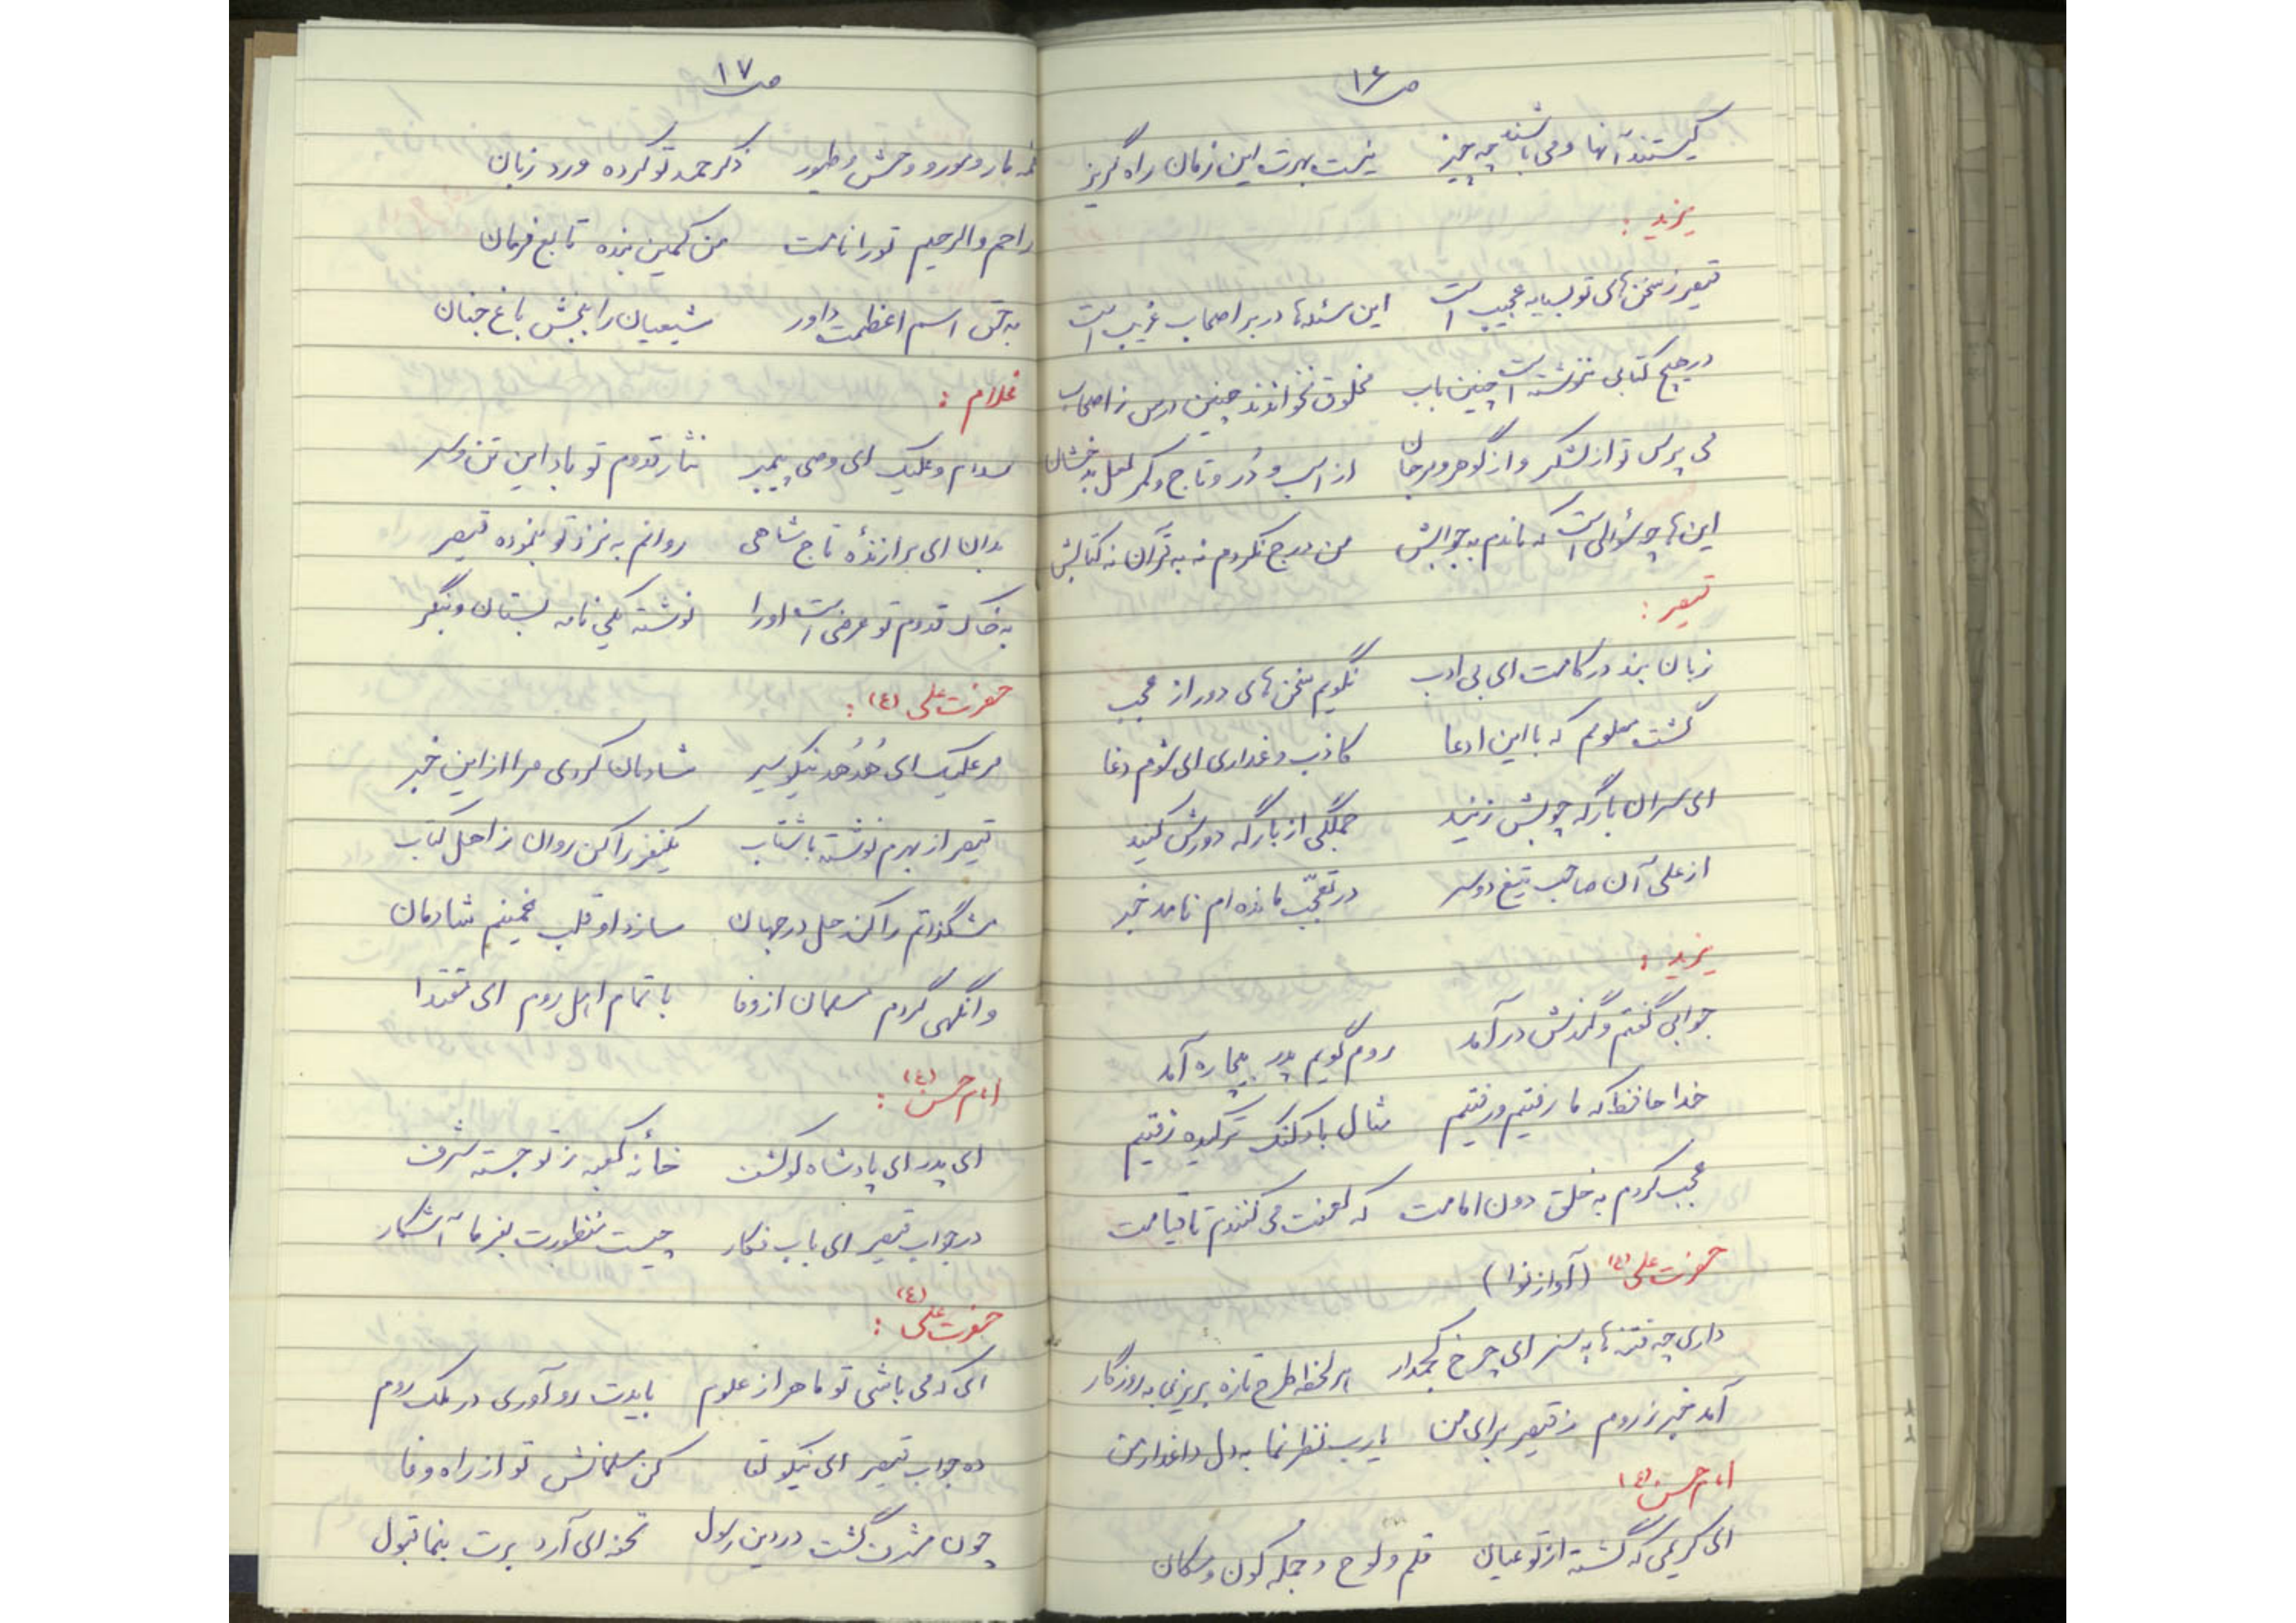 ص ۱۶
کیستند آنها و می باشند چه چیز نیست بهرت این زمان راه گریز
یزید :
قیصر ز سخن های تو بسیار عجیب است این مسئله ها در بر اصحاب غریب است
در هیچ کتابی ننوشته است چنین باب مخلوق نخواندند چنین درس ز اصحاب
می پرس تو از لشکر و از گوهر و مرجان از اسب و دُر و تاج و کمر لعل بدخشان
این ها چه سؤالی است که ماندم به جوابش من درج نکردم نه به قرآن نه کتابش
قیصر :
زبان بند در کامت ای بی ادب نگویم سخن های دور از عجب
گشت معلومم که با این ادعا کاذب و غداری ای شوم دغا
ای سران بارگه چوبش زنید جملگی از بارگه دورش کنید
از علی آن صاحب تیغ دو سر در تعجّب مانده ام نامد خبر
یزید :
جوابی گفتم و گندش در آمد روم گویم پدر بیچاره آمد
خدا حافظ که ما رفتیم و رفتیم مثال بادکنک ترکیده رفتیم
عجب کردم به خلق دون امامت که لعنت می کنندم تا قیامت
حضرت علی (ع) (آواز نوا)
داری چه فتنه ها به سر ای چرخ کجمدار هر لحظه طرح تازه بریزی به روزگار
آمد خبر ز روم ز قیصر برای من یا رب نظر نما به دل داغدار من
امام حسن (ع)
ای کریمی که گشته از تو عیان قلم و لوح و جمله کون و مکان
ص ۱۷
همه مار و مور و وحش و طیور ذکر حمد تو کرده ورد زبان
راحم و الرحیم تو را نامت من کمین بنده تابع فرمان
به حق اسم اعظمت داور شیعیان را ببخش باغ جنان
غلام :
سلام و علیک ای وصی پیمبر نثار قدوم تو باد این تن و سر
بدان ای برازندهٔ تاج شاهی روانم به نزد تو بنموده قیصر
به خاک قدوم تو عرضی است او را نوشته یکی نامه بستان و بنگر
حضرت علی (ع) :
مر علیک ای هُدهُد نیکو سیر شادمان کردی مرا از این خبر
قیصر از بهرم نوشته با شتاب یکنفر را کن روان ز اهل کتاب
مشکلاتم را کند حل در جهان سازد او قلب غمینم شادمان
وانگهی گردم مسلمان از وفا با تمام اهل روم ای مقتدا
امام حسن (ع) :
ای پدر ای پادشاه لو کشف خانهٔ کعبه ز تو جسته شرف
در جواب قیصر ای باب فکار چیست منظورت بفرما آشکار
حضرت علی (ع) :
ای که می باشی تو ماهر از علوم بایدت رو آوری در ملک روم
ده جواب قیصر ای نیکو لقا کن مسلمانش تو از راه وفا
چون مشرف گشت در دین رسول تحفه ای آرد برت بنما قبول